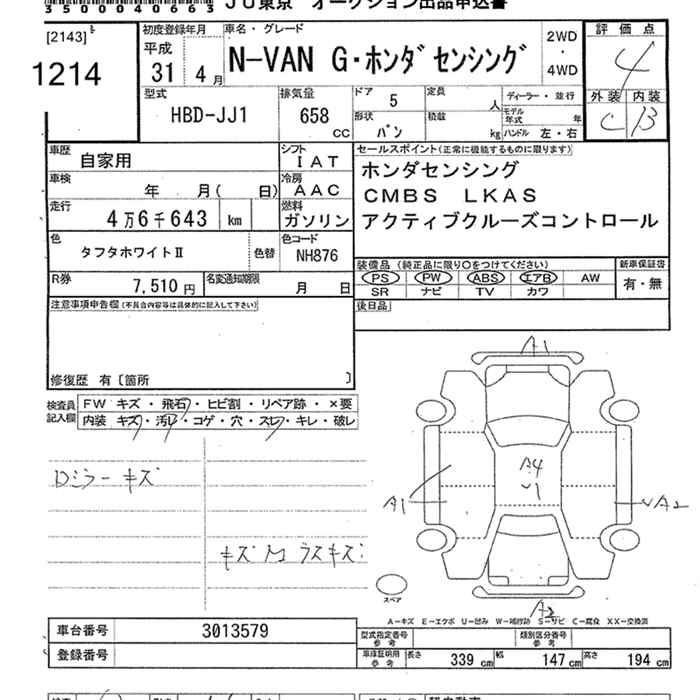 35004066 3 JU東京 オークション出品申込書
[2143]
1214
初度登録年月
平成
31年 4月
車名・グレード
N-VAN G・ホンダセンシング
2WD
・
4WD
評価点
4
外装 内装
C B
型式
HBD-JJ1
排気量
658
CC
ドア 5
定員 人
ディーラー・並行
モデル年式 年
形状 バン
積載 kg
ハンドル 左・右
車歴
自家用
シフト
IAT
車検
年 月( 日)
冷房
AAC
走行
4万6千643 km
燃料
ガソリン
色
タフタホワイトⅡ
色替
色コード
NH876
R券
7,510円
名変通知期限
月 日
セールスポイント(正常に機能するものに限ります)
ホンダセンシング
CMBS LKAS
アクティブクルーズコントロール
装備品(純正品に限り○をつけてください)
PS PW ABS エアB AW
SR ナビ TV カワ
新車保証書
有・無
後日品
注意事項申告欄(不具合内容等は具体的に記入して下さい)
修復歴 有〔箇所 〕
検査員記入欄
FW キズ・飛石・ヒビ割・リペア跡・×要
内装 キズ・汚レ・コゲ・穴・スレ・キレ・破レ
Dミラーキズ
A1
A4
A1
A2
A2
スペア
A-キズ E-エクボ U-凹み W-補修跡 S-サビ C-腐食 XX-交換済
車台番号 3013579
登録番号
型式指定番号 参考
類別区分番号 参考
車庫証明用 参考
長さ 339 cm 幅 147 cm 高さ 194 cm